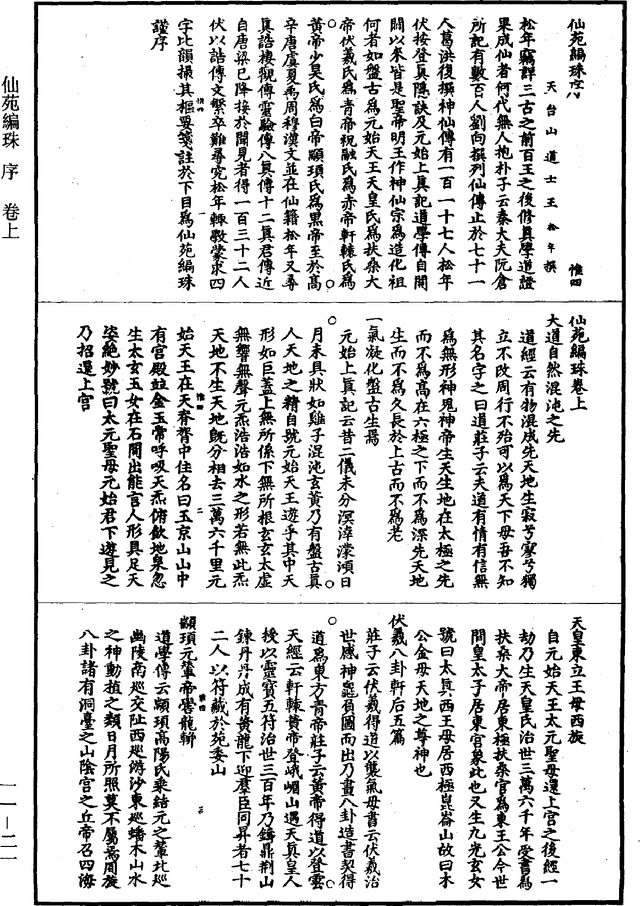 仙苑編珠序
惟四
天台山道士王松年撰
松年竊詳三古之前百王之後修真學道證
果成仙者何代無人抱朴子云秦大夫阮倉
所記有數百人劉向撰列仙傳止於七十一
人葛洪復撰神仙傳有一百一十七人松年
伏按登真隱訣及元始上真記道學傳自開
闢以來皆是聖帝明王作神仙宗為造化祖
何者如盤古為元始天王天皇氏為扶桑大
帝伏羲氏為青帝祝融氏為赤帝軒轅氏為
黃帝少昊氏為白帝顓頊氏為黑帝至於高
辛唐虞夏禹周穆漢文並在仙籍松年又尋
真誥樓觀傳靈驗傳八真傳十二真君傳近
自唐梁已降接於聞見者得一百三十二人
伏以誥傳文繁卒難尋究松年輒斅蒙求四
字比韻撮其樞要箋註於下目為仙苑編珠
謹序
仙苑編珠卷上
大道自然混沌之先
道經云有物混成先天地生寂兮寥兮獨
立不改周行不殆可以為天下母吾不知
其名字之曰道莊子云夫道有情有信無
為無形神鬼神帝生天生地在太極之先
而不為高在六極之下而不為深先天地
生而不為久長於上古而不為老
一氣凝化盤古生焉
元始上真記云昔二儀未分溟涬濛澒日
月未具狀如雞子混沌玄黃乃有盤古真
人天地之精自號元始天王遊乎其中天
形如巨蓋上無所係下無所根玄玄太虛
無響無聲元炁浩浩如水之形若無此炁
天地不生天地既分相去三萬六千里元
始天王在天脊膂中住名曰玉京山山中
有宮殿並金玉常呼吸天炁俯飲地泉忽
生太玄玉女在石間出能言人形具足天
姿絕妙號曰太元聖母元始君下遊見之
乃招還上宮
天皇東立王母西旋
自元始天王太元聖母還上宮之後經一
劫乃生天皇氏治世三萬六千年受書為
扶桑大帝居東極扶桑宮為東王公今世
間皇太子居東宮象此也又生九光玄女
號曰太真西王母居西極崑崙山故曰木
公金母天地之尊神也
伏羲八卦軒后五篇
莊子云伏羲得道以襲氣母書云伏羲治
世感神龜負圖而出乃畫八卦造書契得
道為東方青帝莊子云黃帝得道以登雲
天經云軒轅黃帝登峨嵋山遇天真皇人
授以靈寶五符治世三百年乃鑄鼎荊山
鍊丹丹成有黃龍下迎群臣同昇者七十
二人以符藏於苑委山
顓頊元輦帝嚳龍軿
道學傳云顓頊高陽氏乘結元之輦北巡
幽陵南巡交阯西巡游沙東巡蟠木山水
之神動植之類日月所照莫不屬焉周旋
八卦諸有洞臺之山陰宮之丘帝召四海
仙苑編珠 序 卷上
一一-二一